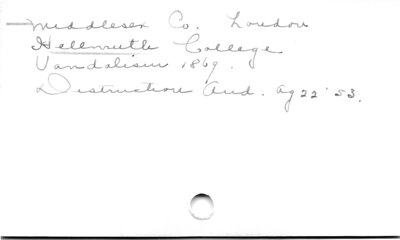 Middlesex Co. London
Hellmuth College
Vandalism 1869.
Destruction And. Ag 22 '53.